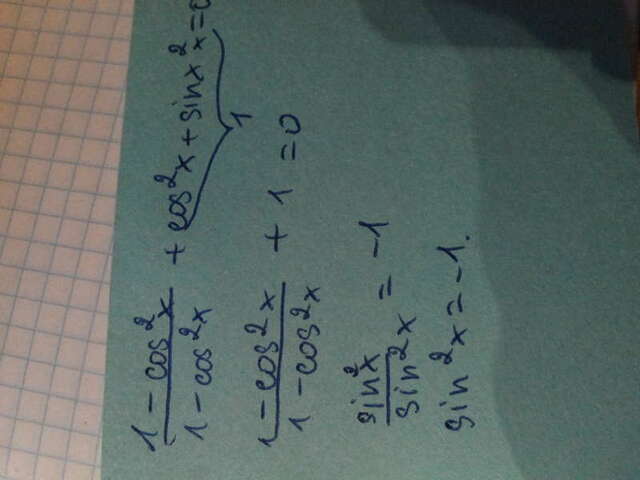 (1 - cos²x)/(1 - cos²x) + cos²x + sinx²x = 0
1
(1 - cos²x)/(1 - cos²x) + 1 = 0
sin²x/sin²x = -1
sin²x = -1.